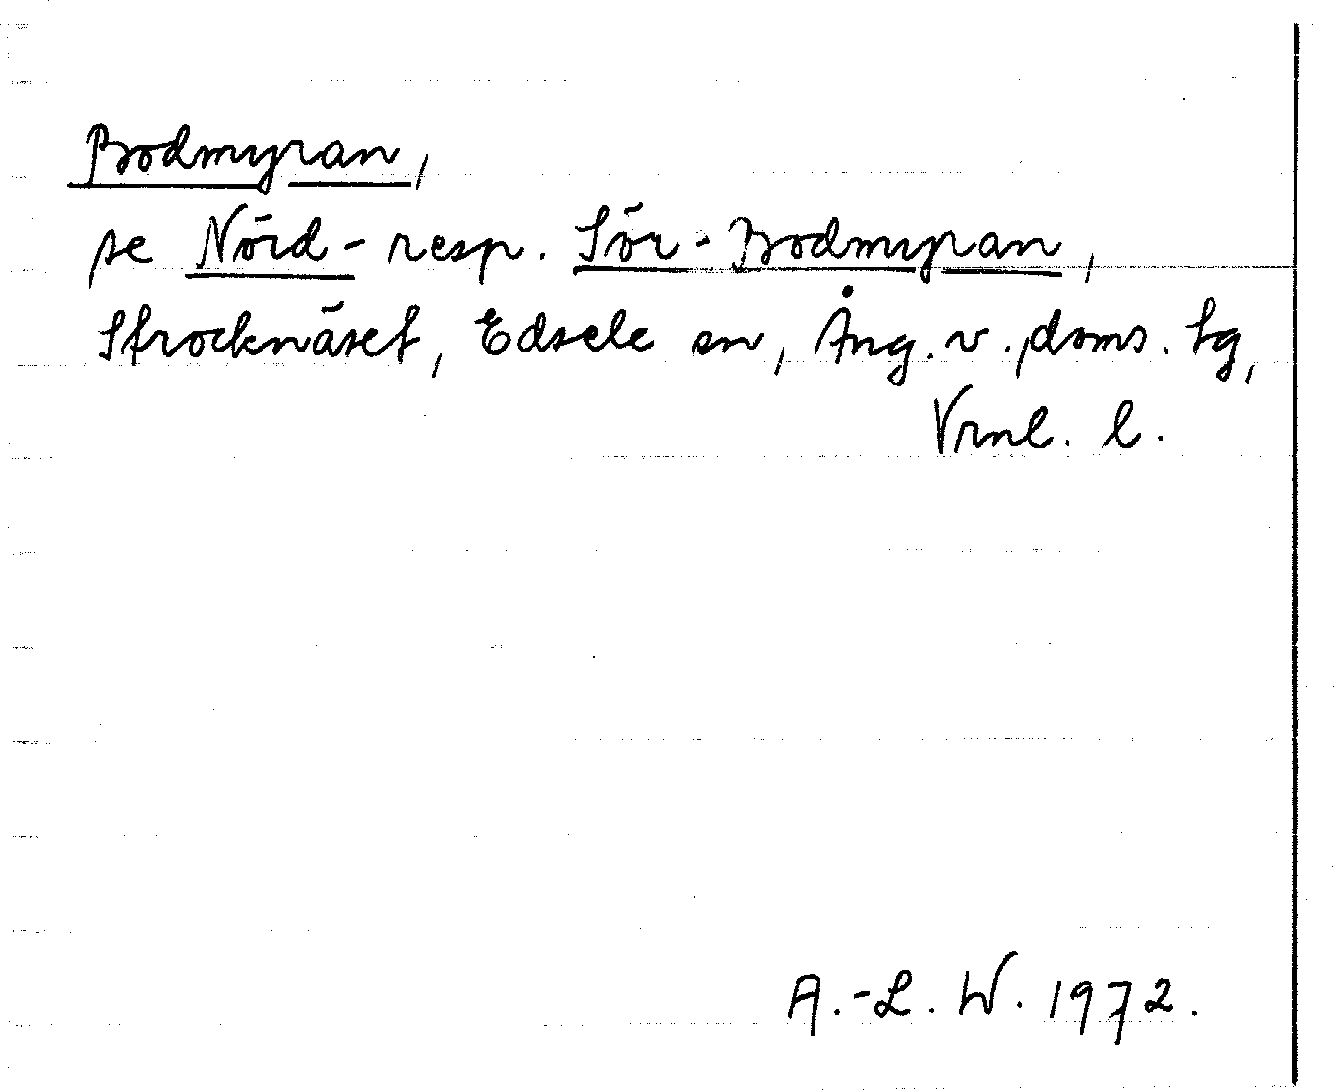 Bodmyran,
se Nörd- resp. Sör-Bodmyran,
Strocknäset, Edsele sn, Ång. v. doms. tg,
Vrnl. l.
A.-L. W. 1972.